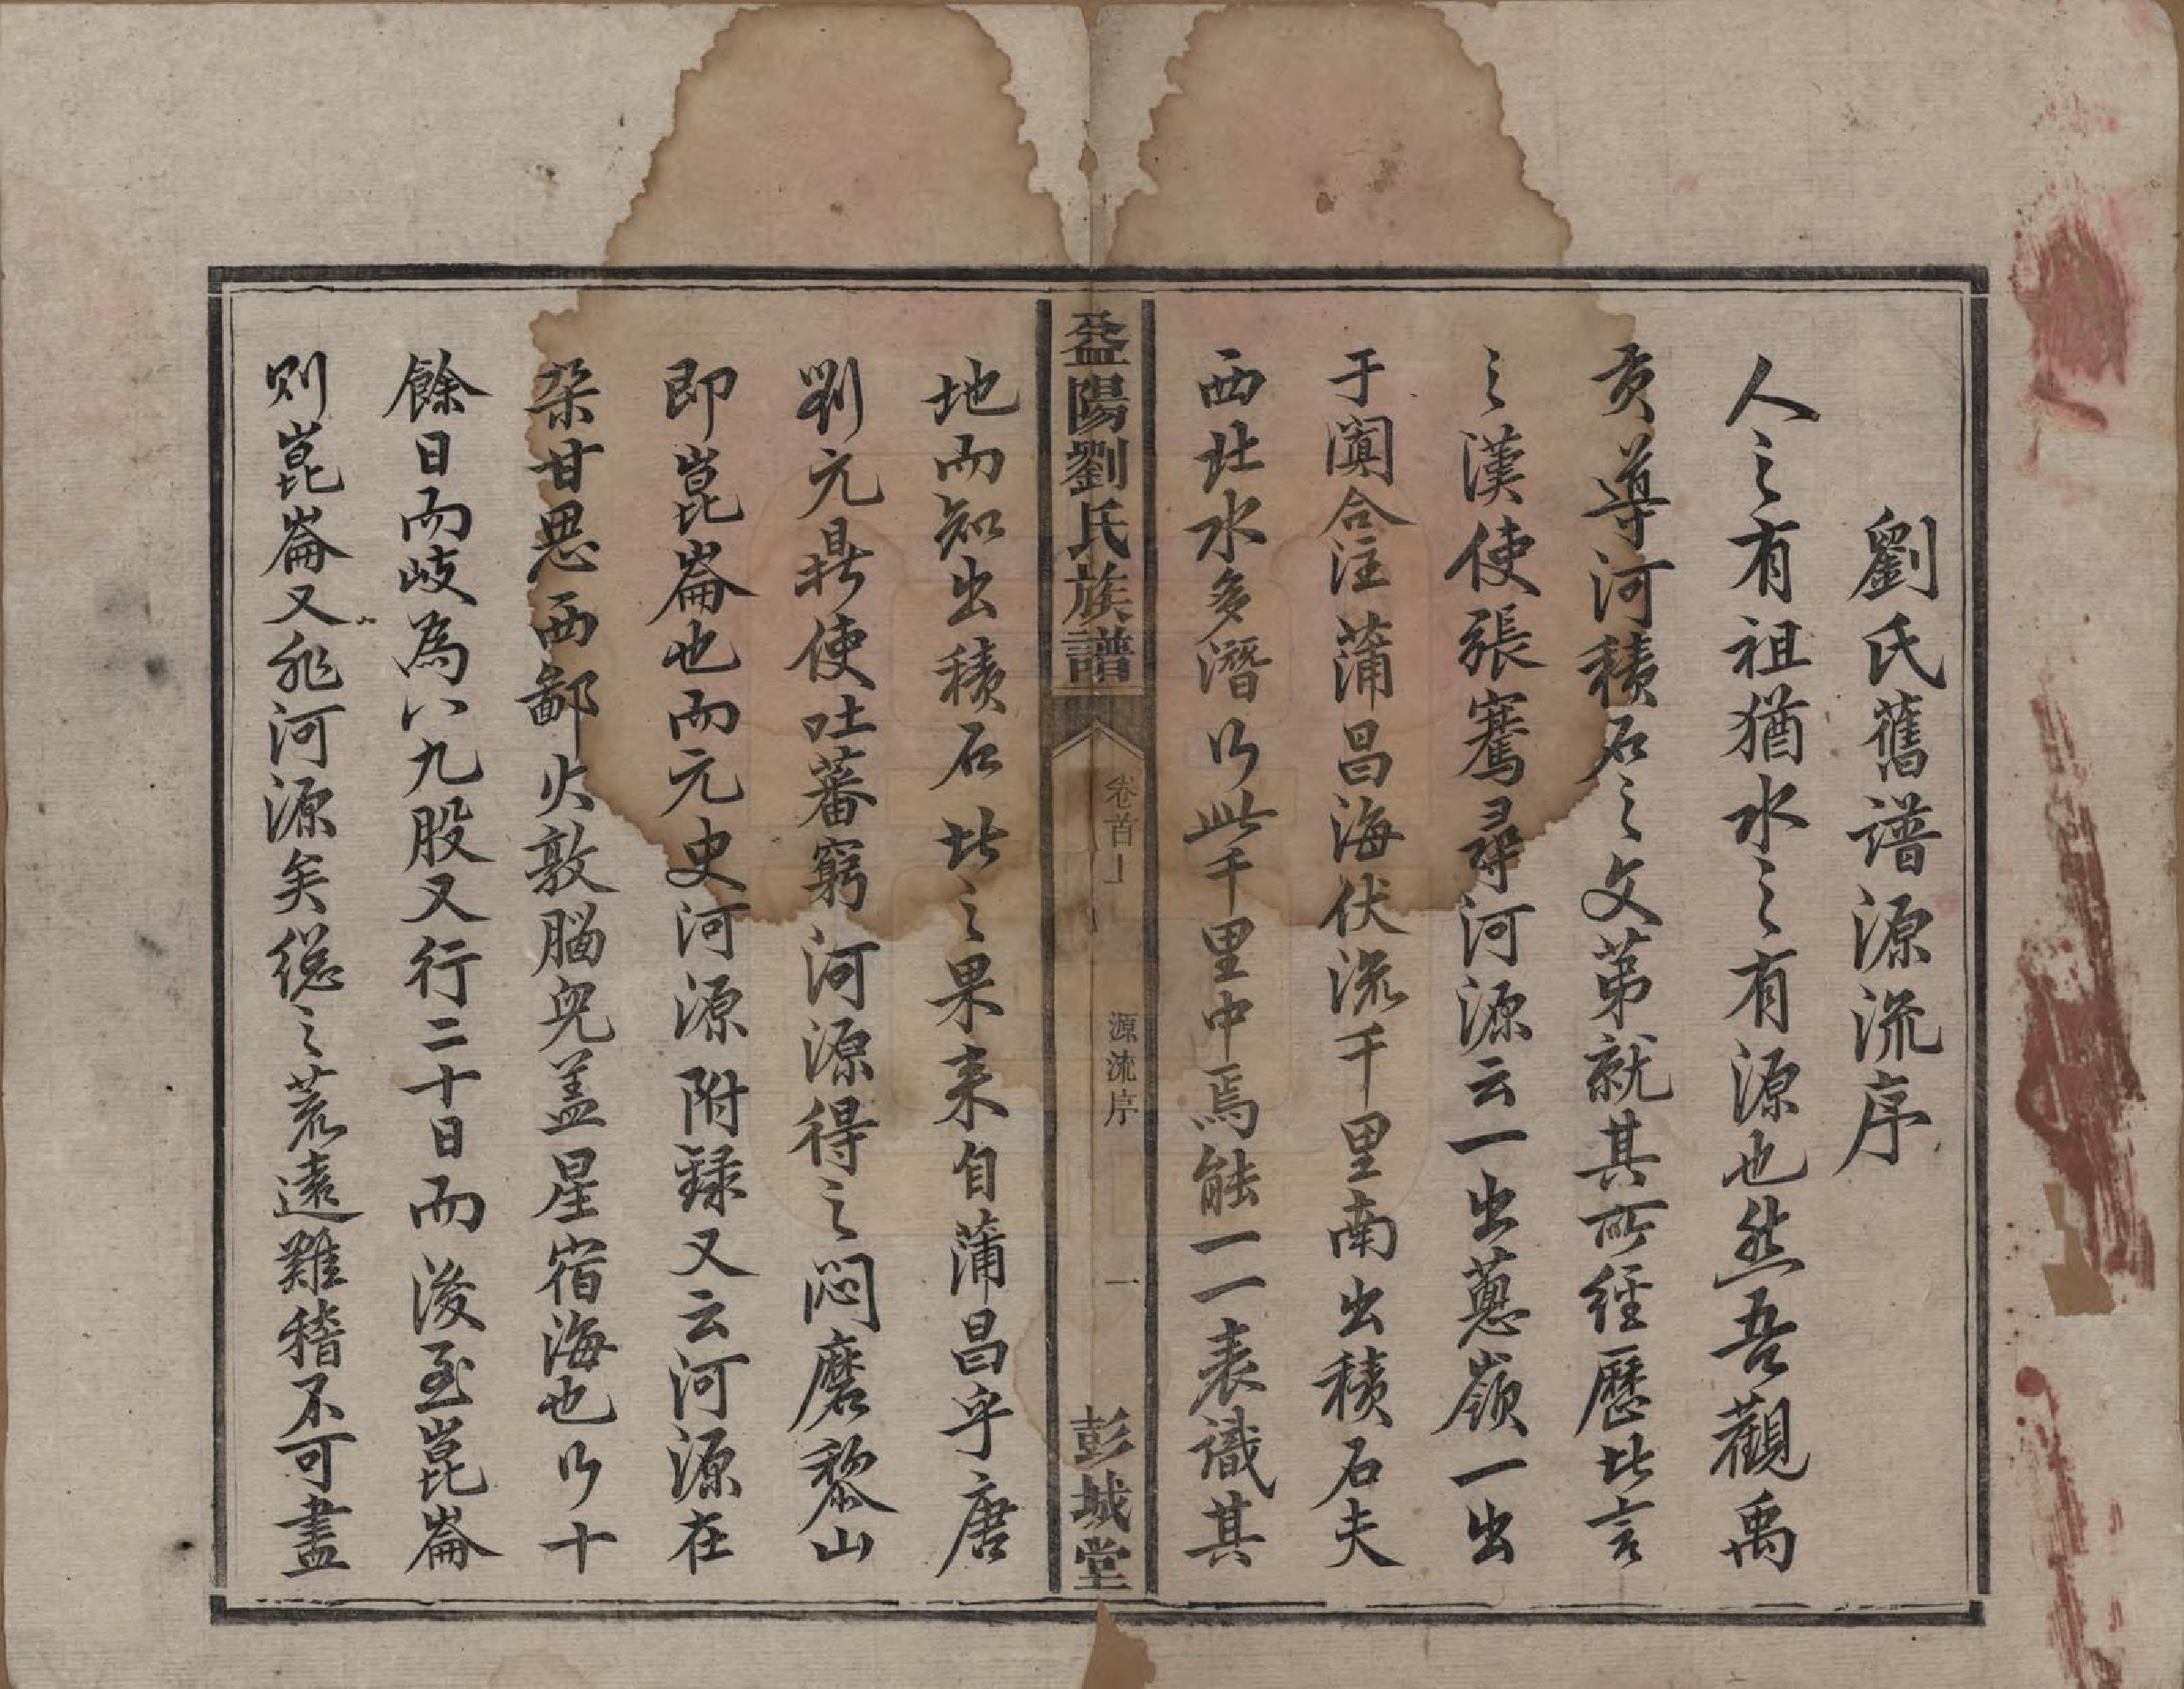 劉氏舊譜源流序
人之有祖猶水之有源也然吾觀禹
貢導河積石之文第就其所經歷比言
之漢使張騫尋河源云一出蔥嶺一出
于闐合注蒲昌海伏流千里南出積石夫
西北水多潛以此千里中焉能一一表識其
地而知出積石北之果来自蒲昌乎唐
劉元鼎使吐蕃窮河源得之悶磨黎山
即崑崙也而元史河源附録又云河源在
朶甘思西鄙火敦腦兒盖星宿海也以十
餘日而岐為八九股又行二十日而後至崑崙
則崑崙又非河源矣総之荒遠難稽不可盡
益陽劉氏族譜
卷首上
源流序
一
彭城堂